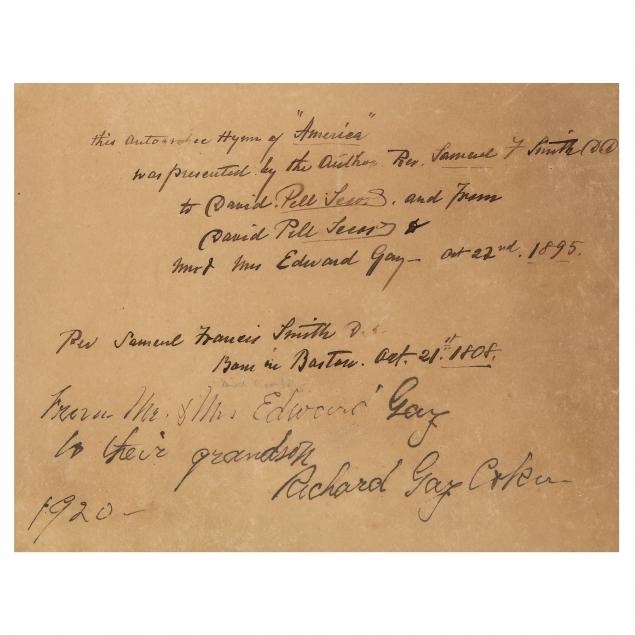 this Autografee Hymn of "America"
was presented by the Author Rev. Samuel F Smith DD
to David Pell Secor, and from
David Pell Secor to
Mr & Mrs Edward Gay - Oct 22nd. 1895.
Rev Samuel Francis Smith D.
Born in Boston. Oct. 21st 1808.
From Mr. & Mrs Edward Gay
to their grandson
Richard Gay Coker
1920-